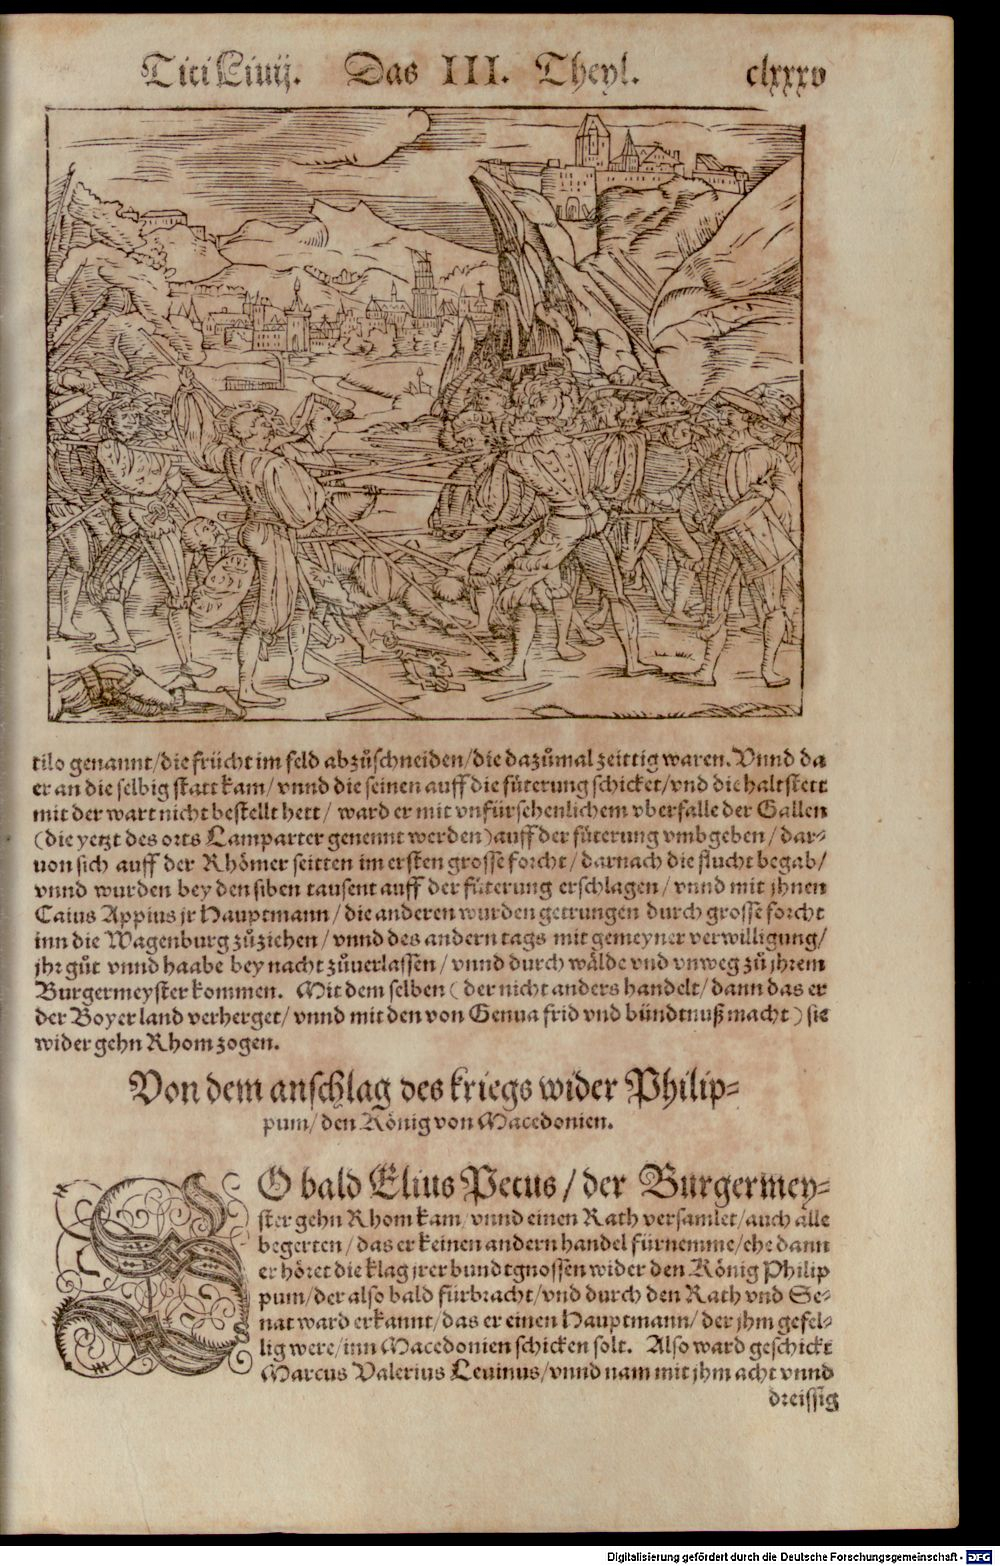 Titi Liuij. Das III. Theyl. clxxxv
tilo genannt/die frücht im feld abzůschneiden/die dazůmal zeittig waren. Vnnd da
er an die selbig statt kam/ vnnd die seinen auff die fůterung schicket/vnd die haltstett
mit der wart nicht bestellt hett/ ward er mit vnfürsehenlichem vberfalle der Gallen
(die yetzt des orts Lamparter genennt werden) auff der fůterung vmbgeben/ dar-
uon sich auff der Rhömer seitten im ersten grosse forcht/ darnach die flucht begab/
vnnd wurden bey den siben tausent auff der fůterung erschlagen/ vnnd mit jhnen
Caius Appius jr Hauptmann/ die anderen wurden getrungen durch grosse forcht
inn die Wagenburg zůziehen/ vnnd des andern tags mit gemeyner verwilligung/
jhr gůt vnnd haabe bey nacht zůuerlassen/ vnnd durch wälde vnd vnweg zů jhrem
Burgermeyster kommen. Mit dem selben ( der nicht anders handelt/ dann das er
der Boyer land verherget/ vnnd mit den von Genua frid vnd bündtnuß macht ) sie
wider gehn Rhom zogen.
Von dem anschlag des kriegs wider Philip-
pum/ den König von Macedonien.
SO bald Elius Petus/ der Burgermey-
ster gehn Rhom kam/ vnnd einen Rath versamlet/ auch alle
begerten/ das er keinen andern handel fürnemme/ehe dann
er höret die klag jrer bundtgnossen wider den König Philip
pum/ der also bald fürbracht/ vnd durch den Rath vnd Se-
nat ward erkannt/ das er einen Hauptmann/ der jhm gefel-
lig were/ inn Macedonien schicken solt. Also ward geschickt
Marcus Valerius Leuinus/ vnnd nam mit jhm acht vnnd
dreissig
Digitalisierung gefördert durch die Deutsche Forschungsgemeinschaft - DFG